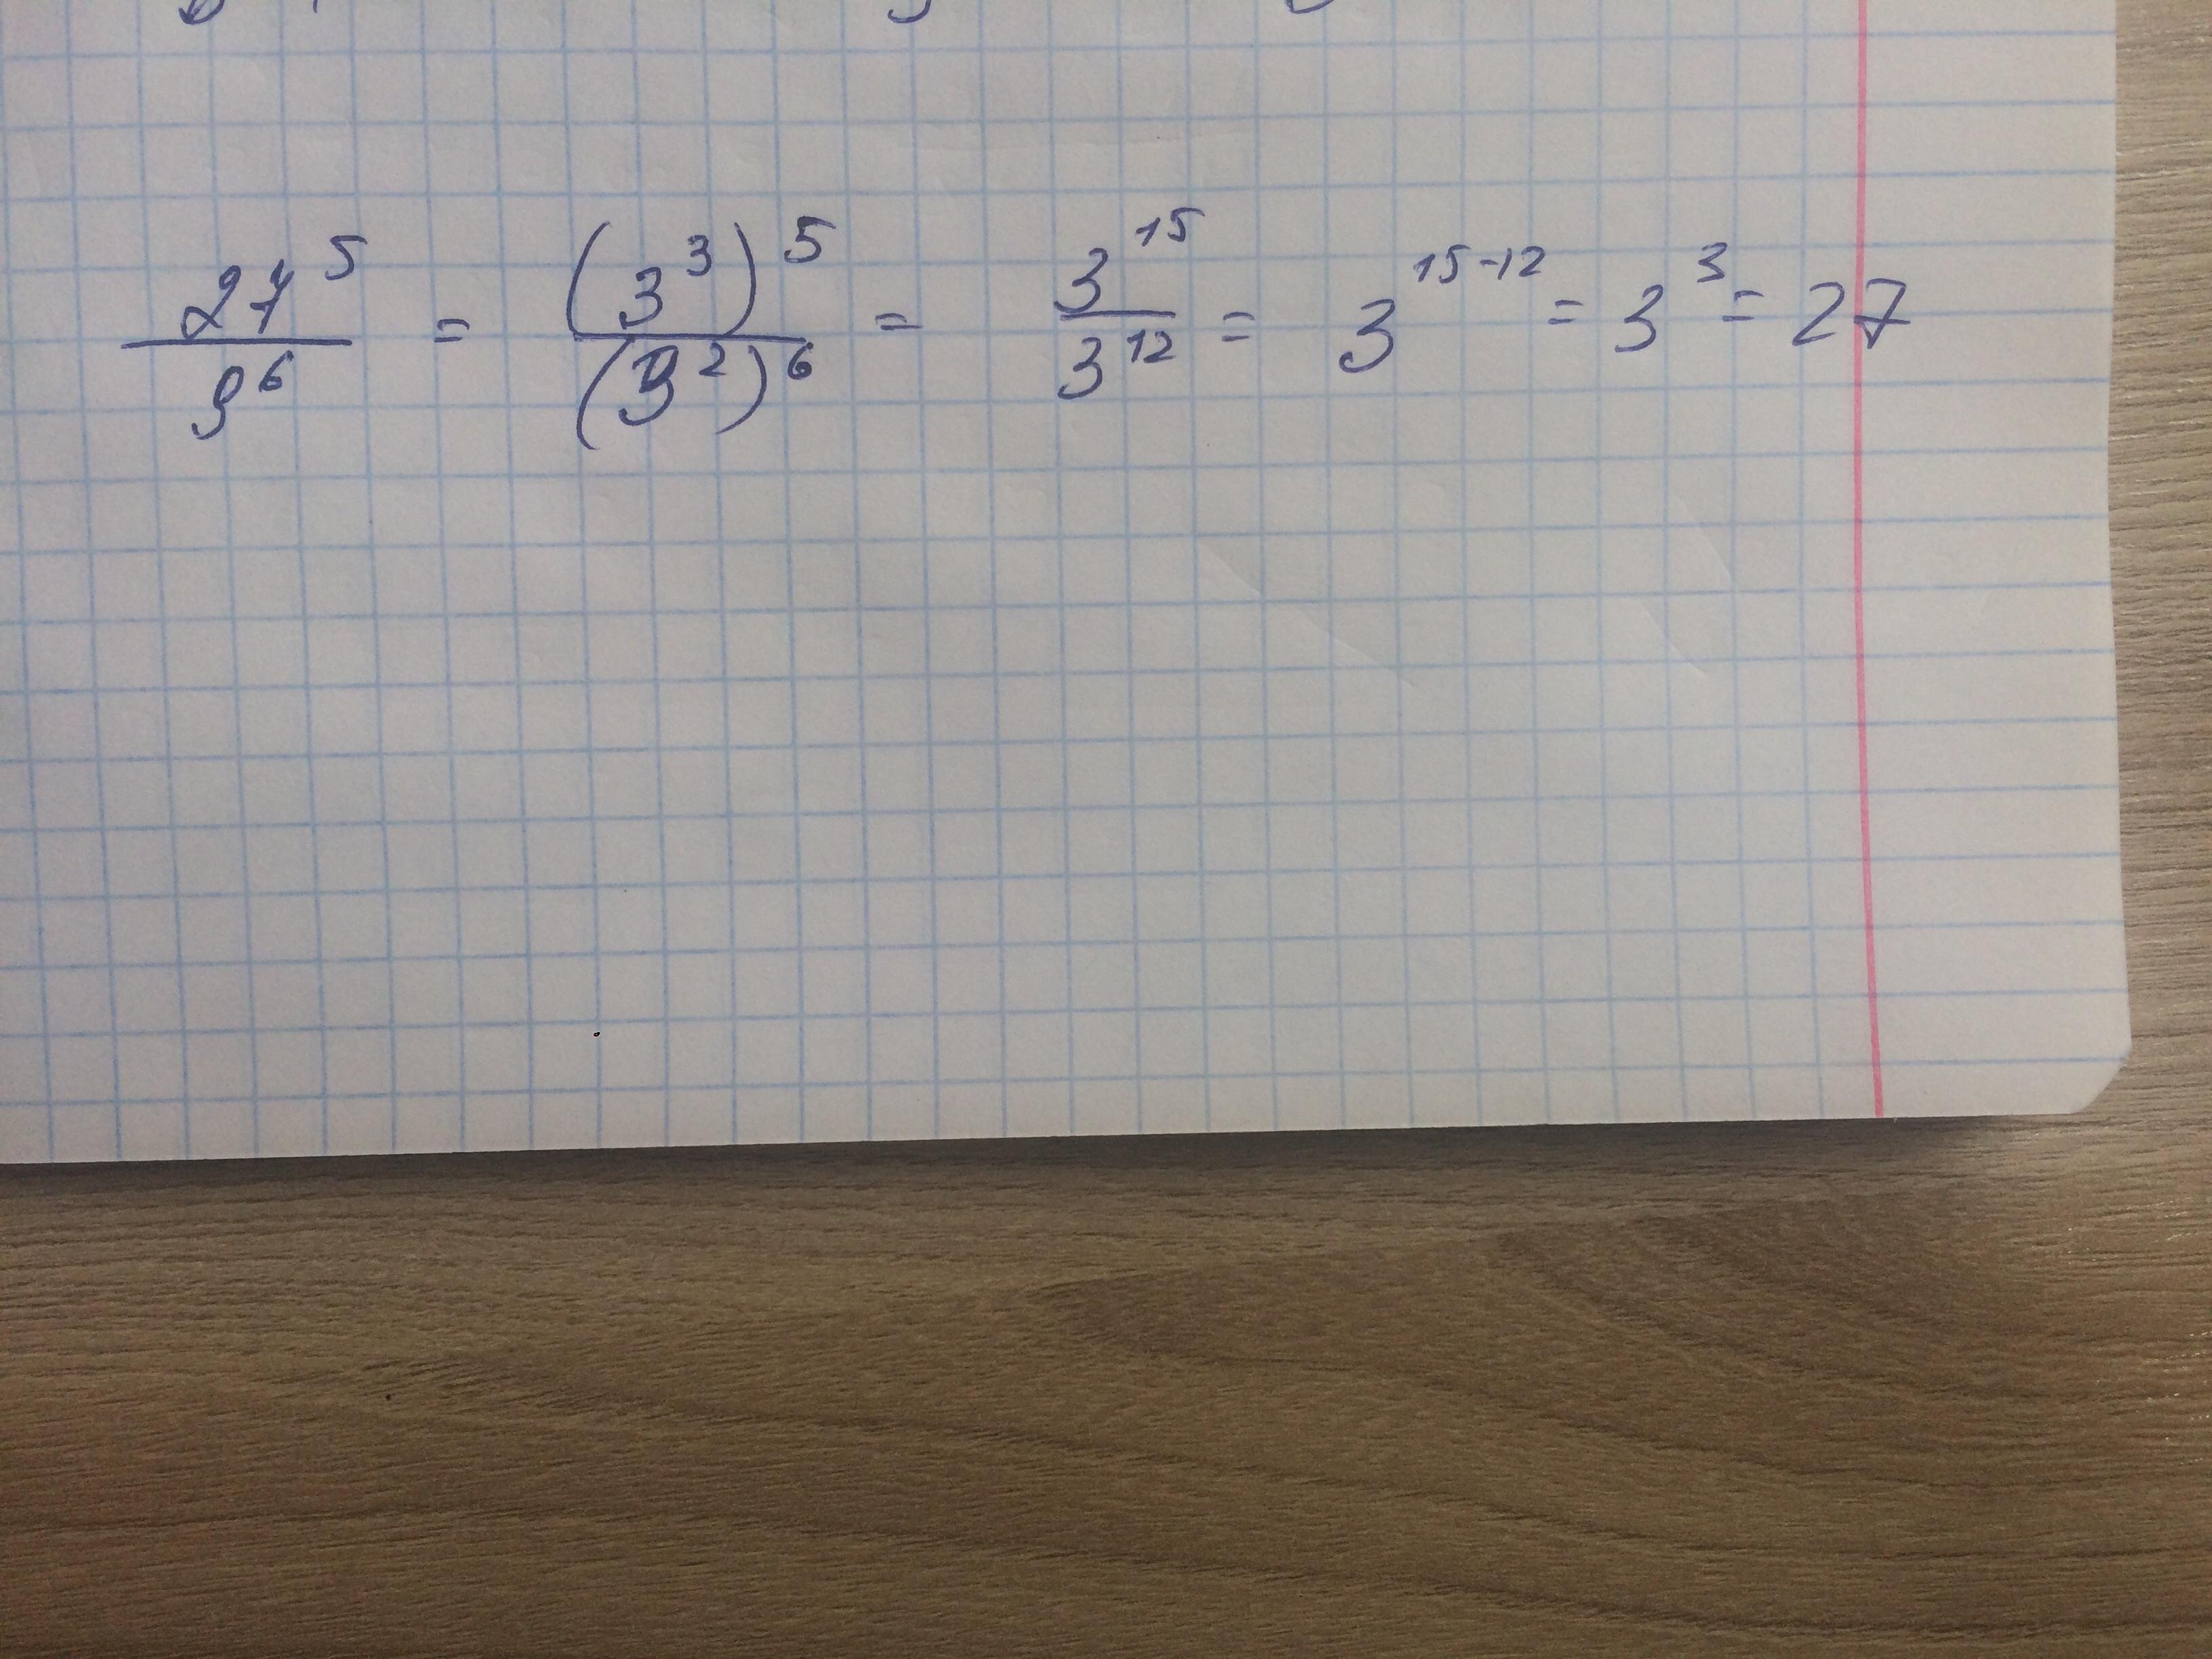 27^5/9^6 = (3^3)^5/(3^2)^6 = 3^15/3^12 = 3^15-12 = 3^3 = 27